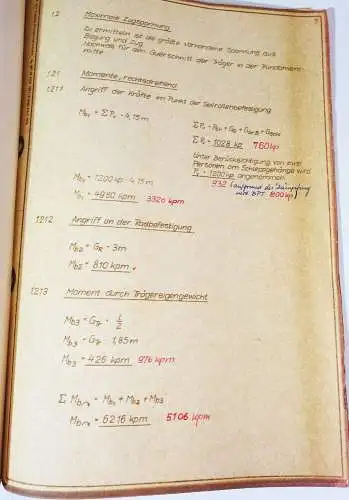 1.2 Maximale Zugspannung
Zu ermitteln ist die größte vorhandene Spannung aus
Biegung und Zug
Nachweis für den Querschnitt der Träger in der Fundament-
mitte
1.2.1 Momente, rechtsdrehend
1.2.1.1 Angriff der Kräfte im Punkt der Seilrollenbefestigung
Mb1 = ΣPv · 4,15m
ΣPv
ΣPv = 1028 kp 760kp
Unter Berücksichtigung von zwei
Personen am
Pv = 1200kp angenommen.
932 (aufgrund der Dämpfung
800kp)
Mb1 = 1200kp · 4,15m
Mb1 = 4980 kpm 3320 kpm
1.2.1.2 Angriff an der Radbefestigung
Mb2 = GR · 3m
Mb2 = 810 kpm
1.2.1.3 Moment durch Trägereigengewicht
Mb3 = GTr · L/2
Mb3 = GTr · 1,85m
Mb3 = 426 kpm 976 kpm
Σ Mbre = Mb1 + Mb2 + Mb3
Mbre = 6216 kpm 5106 kpm